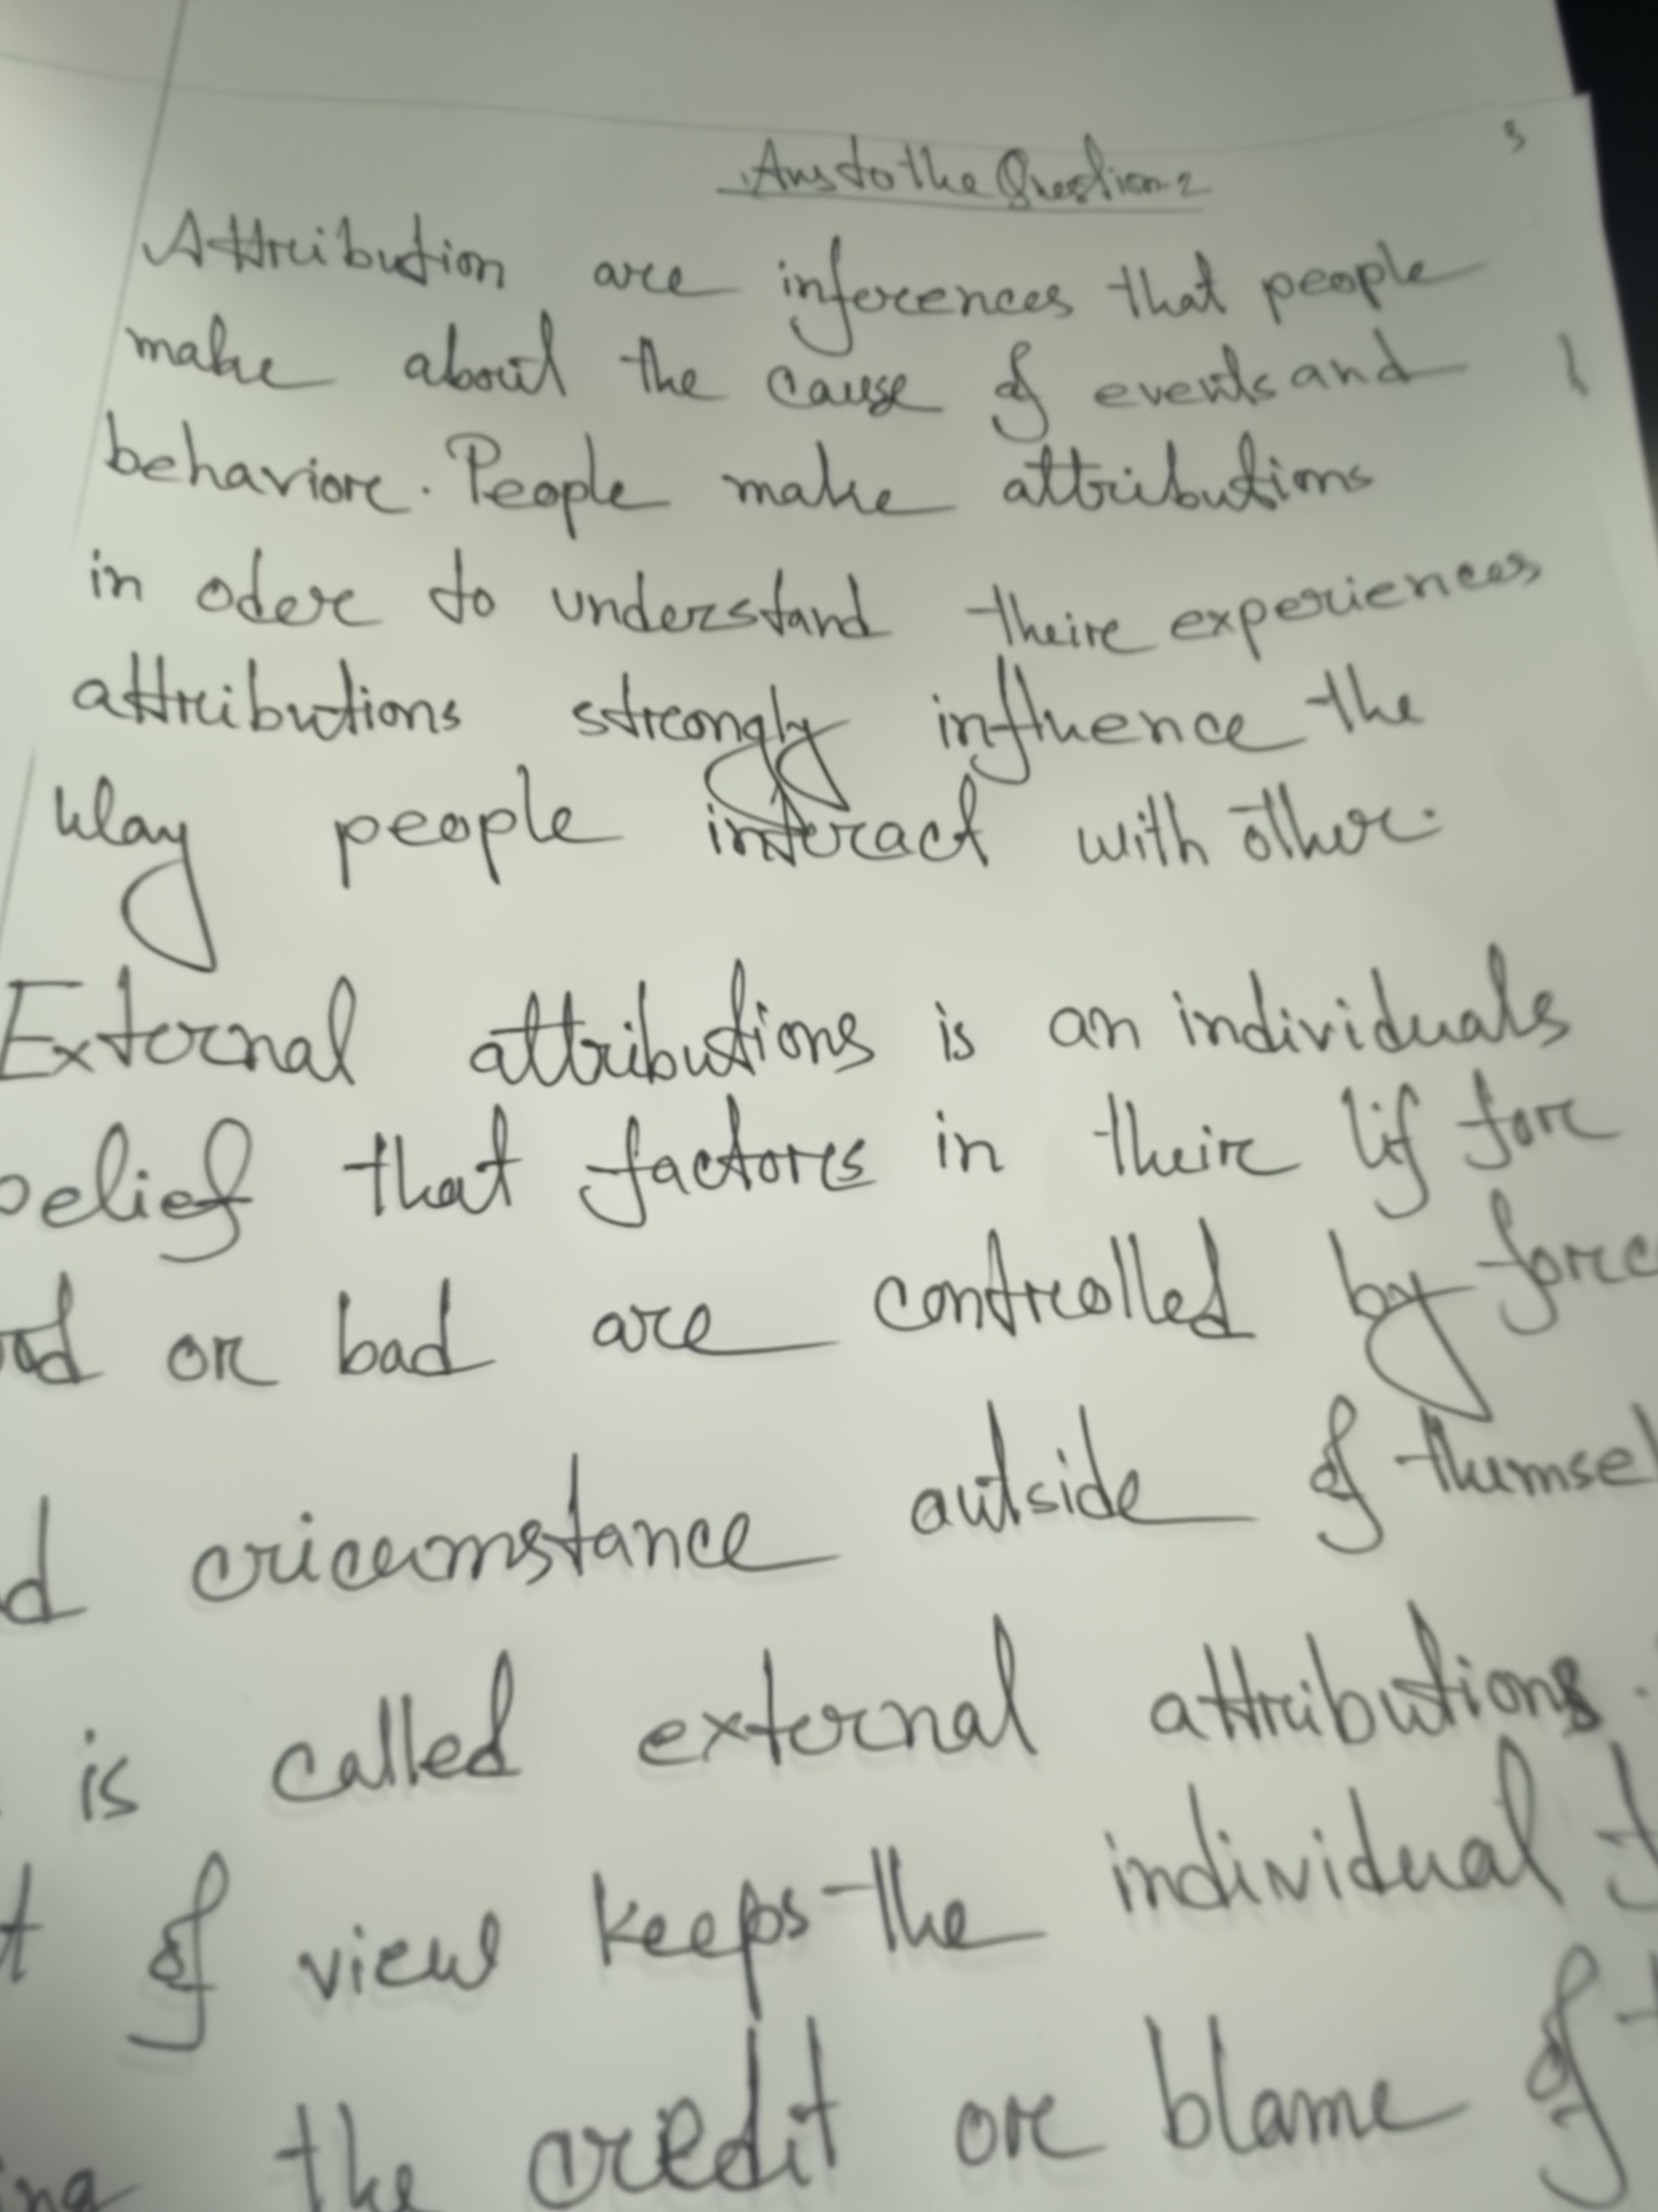 3
Ans to the Question-2
Attribution are inferences that people
make about the cause of events and
behavior. People make attributions
in oder to understand their experiences
attributions strongly influence the
way people interact with other.
External attributions is an individuals
belief that factors in their lif for
or bad are controlled by
circumstance outside of
is called external attributions.
of view keeps the individual
the credit or blame of